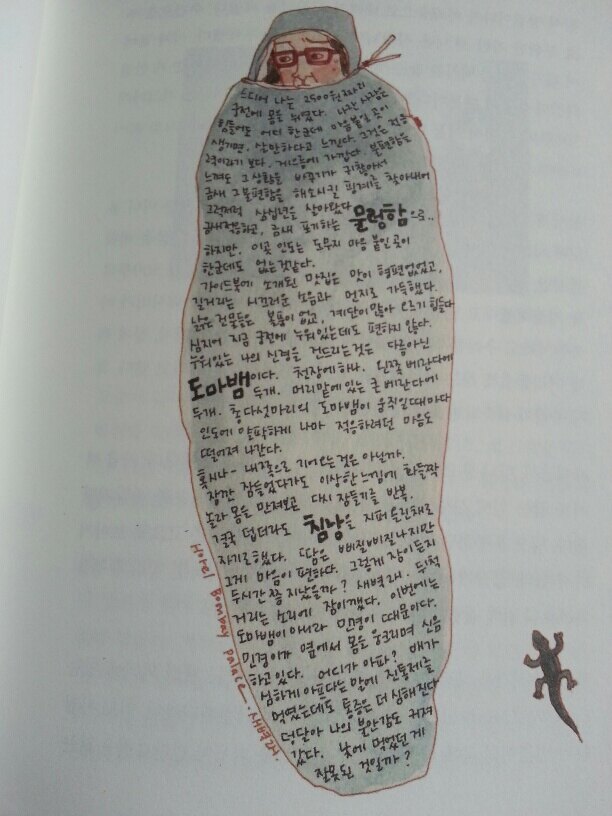 드디어 나는 2500원짜리
궁전에 몸을 뉘였다. 나란 사람은
힘들어도 어디 한군데 마음 붙일 곳이
생기면, 살만하다고 느낀다. 그것은 적응
력이라기 보다, 게으름에 가깝다. 불편함을
느껴도 그 상황을 바꾸기가 귀찮아서
금새 그 불편함을 해소시킬 핑계를 찾아내어
그럭저럭 삼십년을 살아왔다.
금새적응하고, 금새 포기하는 물렁함으로..
하지만, 이곳 인도는 도무지 마음 붙일 곳이
한군데도 없는것같다.
가이드북에 소개된 맛집은 맛이 형편없었고,
길거리는 시끄러운 소음과 먼지로 가득했다.
낡은 건물들은 볼품이 없고, 계단이 많아 오르기 힘들다
심지어 지금 궁전에 누워있는데도 편하지 않다.
누워있는 나의 신경을 건드리는것은 다름아닌
도마뱀이다. 천장에 하나. 왼쪽 베란다에
두개. 머리맡에 있는 큰 베란다에
두개. 총 다섯마리의 도마뱀이 움직일때마다
인도에 얄팍하게 나마 적응하려던 마음도
떨어져 나간다.
혹시나- 내쪽으로 기어오는것은 아닐까.
잠깐 잠들었다가도 이상한 느낌에 화들짝
놀라 몸을 만져보고 다시 잠들기를 반복.
결국 덥더라도 침낭을 지퍼 올린채로
자기로했다. 땀은 삐질삐질나지만
그게 마음이 편하다. 그렇게 잠이든지
두시간쯤 지났을까? 새벽2시. 뒤척
거리는 소리에 잠이깼다. 이번에는
도마뱀이 아니라 민경이 때문이다.
민경이가 옆에서 몸을 웅크리며 신음
하고 있다. 어디가 아파? 배가
심하게 아프다는 말에 진통제를
먹였는데도 통증은 더 심해진다
덩달아 나의 불안감도 커져
갔다. 낮에 먹었던 게
잘못된 것일까?
Hotel Bombay palace-.